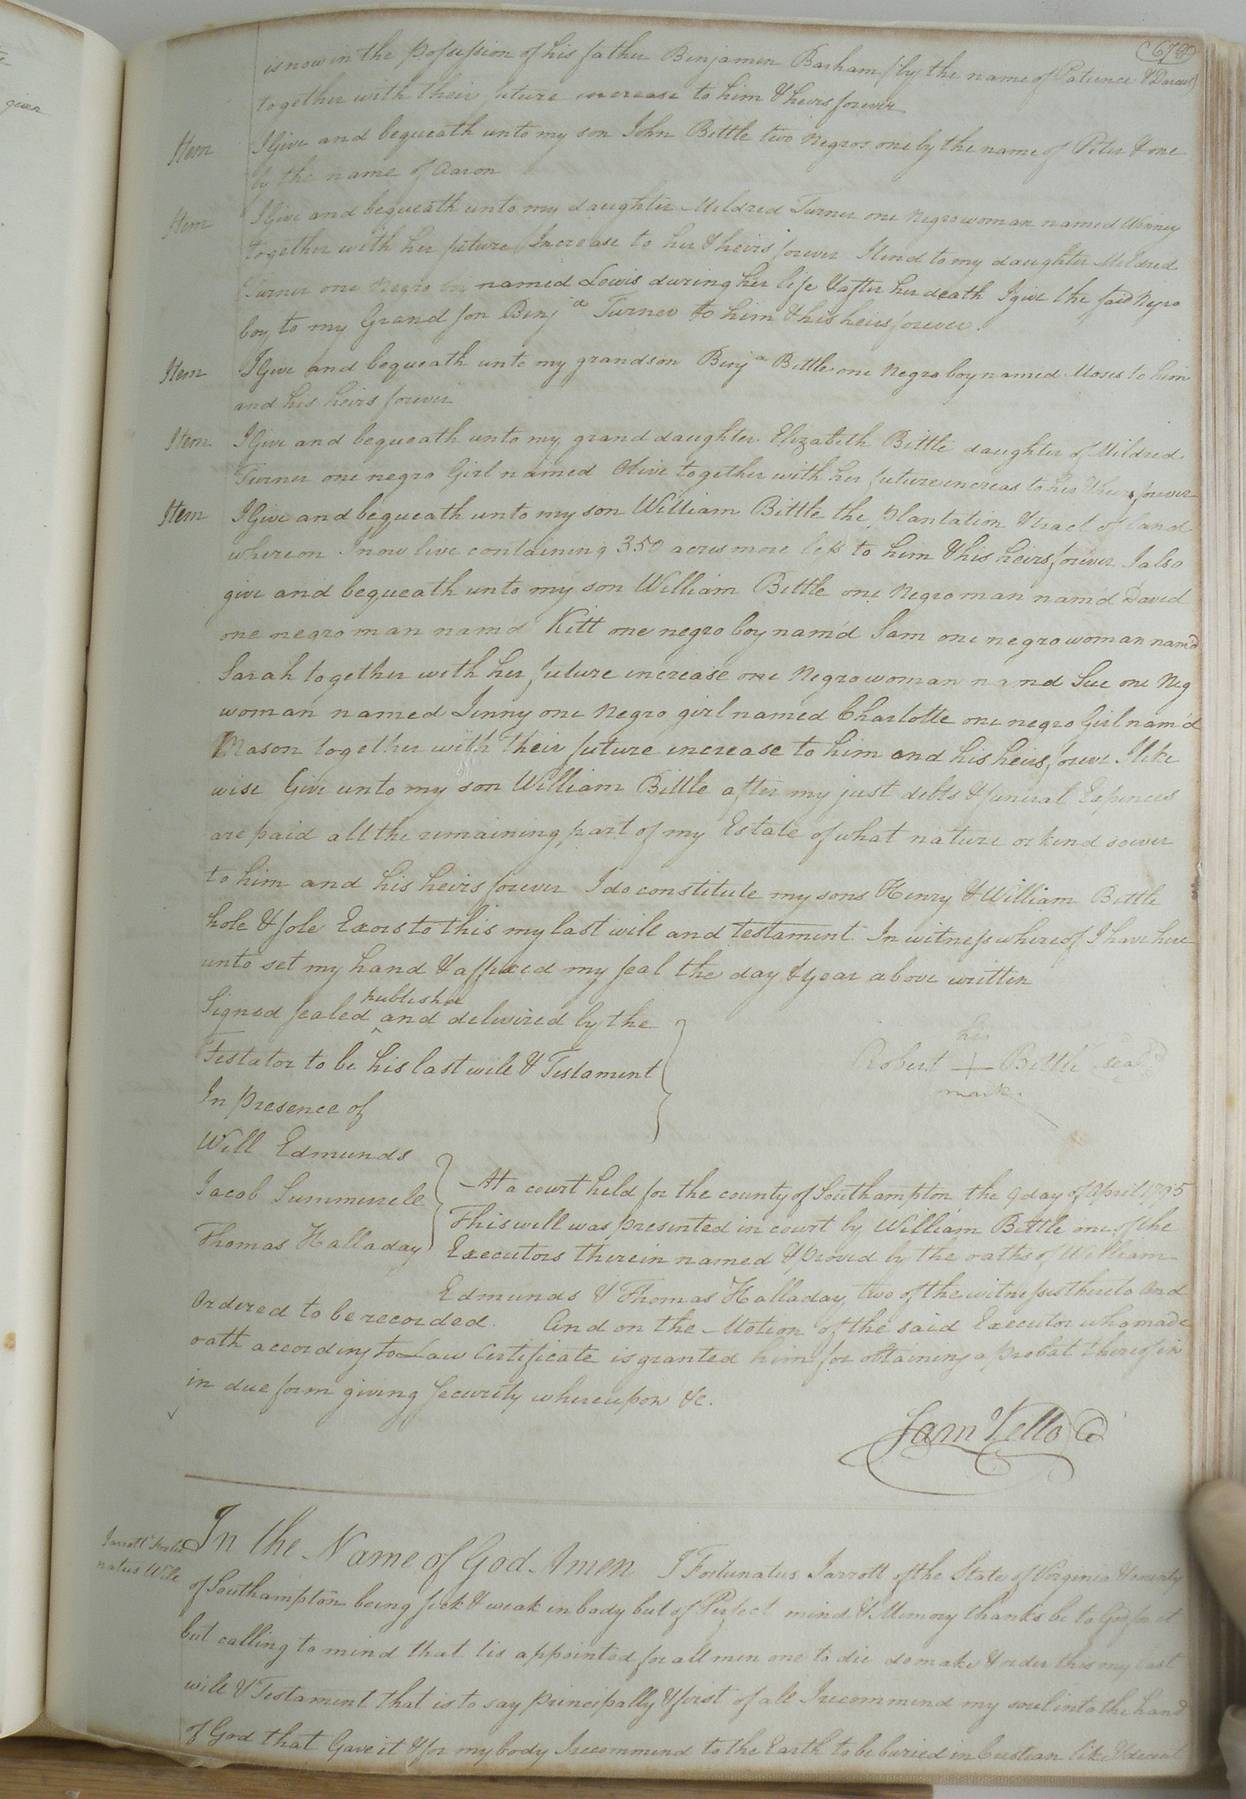 given
678
is now in the possession of his father Benjamin Barham by the name of Patience &
together with their future increase to him & heirs forever
Item I Give and bequeath unto my son John Bittle two Negros one by the name of Peter & one
by the name of Aaron
Item I Give and bequeath unto my daughter Mildred Turner one Negro woman named Winney
together with her future Increase to her & heirs forever I lend to my daughter Mildred
Turner one Negro boy named Lewis during her life & after her death I give the said Negro
boy to my Grand son Benja Turner to him & his heirs forever.
Item I Give and bequeath unto my grandson Benja Bittle one Negro boy named Moses to him
and his heirs forever
Item I Give and bequeath unto my grand daughter Elizabeth Bittle daughter of Mildred
Turner one negro Girl named Olive together with her future increas to her & heirs forever
Item I Give and bequeath unto my son William Bittle the plantation & tract of land
whereon I now live containing 350 acres more less to him & his heirs forever I also
give and bequeath unto my son William Bittle one Negro man nam'd David
one negro man nam'd Kitt one negro boy nam'd Sam one negro woman nam'd
Sarah together with her future increase one Negro woman namd Sue one Neg
woman named Jinny one Negro girl named Charlotte one negro Girl nam'd
Mason together with their future increase to him and his heirs forever I like
wise Give unto my son William Bittle after my just debts & funeral Expences
are paid all the remaining part of my Estate of what nature or kind soever
to him and his heirs forever I do constitute my sons Henry & William Bittle
hole & sole Exors to this my last will and testament In witness whereof I have here
unto set my hand & affixed my seal the day & year above written
Signed sealed publish'd and delivered by the
Testator to be his last will & Testament
In presence of
his
Robert + Bittle seal
mark.
Will Edmunds
Jacob Summerele
Thomas Halladay
At a court held for the county of Southampton the 9 day of April 1795
This will was presented in court by William Bittle one of the
Executors therein named & proved by the oaths of William
Edmunds & Thomas Halladay two of the witnesses thereto and
ordered to be recorded. And on the Motion of the said Executor who made
oath according to Law Certificate is granted him for obtaining a probat thereof in
in due form giving security whereupon &c.
Sam Kello
Jarrott Fortu
natus Will
In the Name of God Amen I Fortunatus Jarrott of the State of Virginia & County
of Southampton being sick & weak in body but of Perfect mind & Memory thanks be to God for it
but calling to mind that tis appointed for all men one to die do make & order this my last
will & Testament that is to say principally & first of all I recommend my soul into the hand
of God that Gave it & for my body I recommend to the Earth to be buried in Cristian like & decent